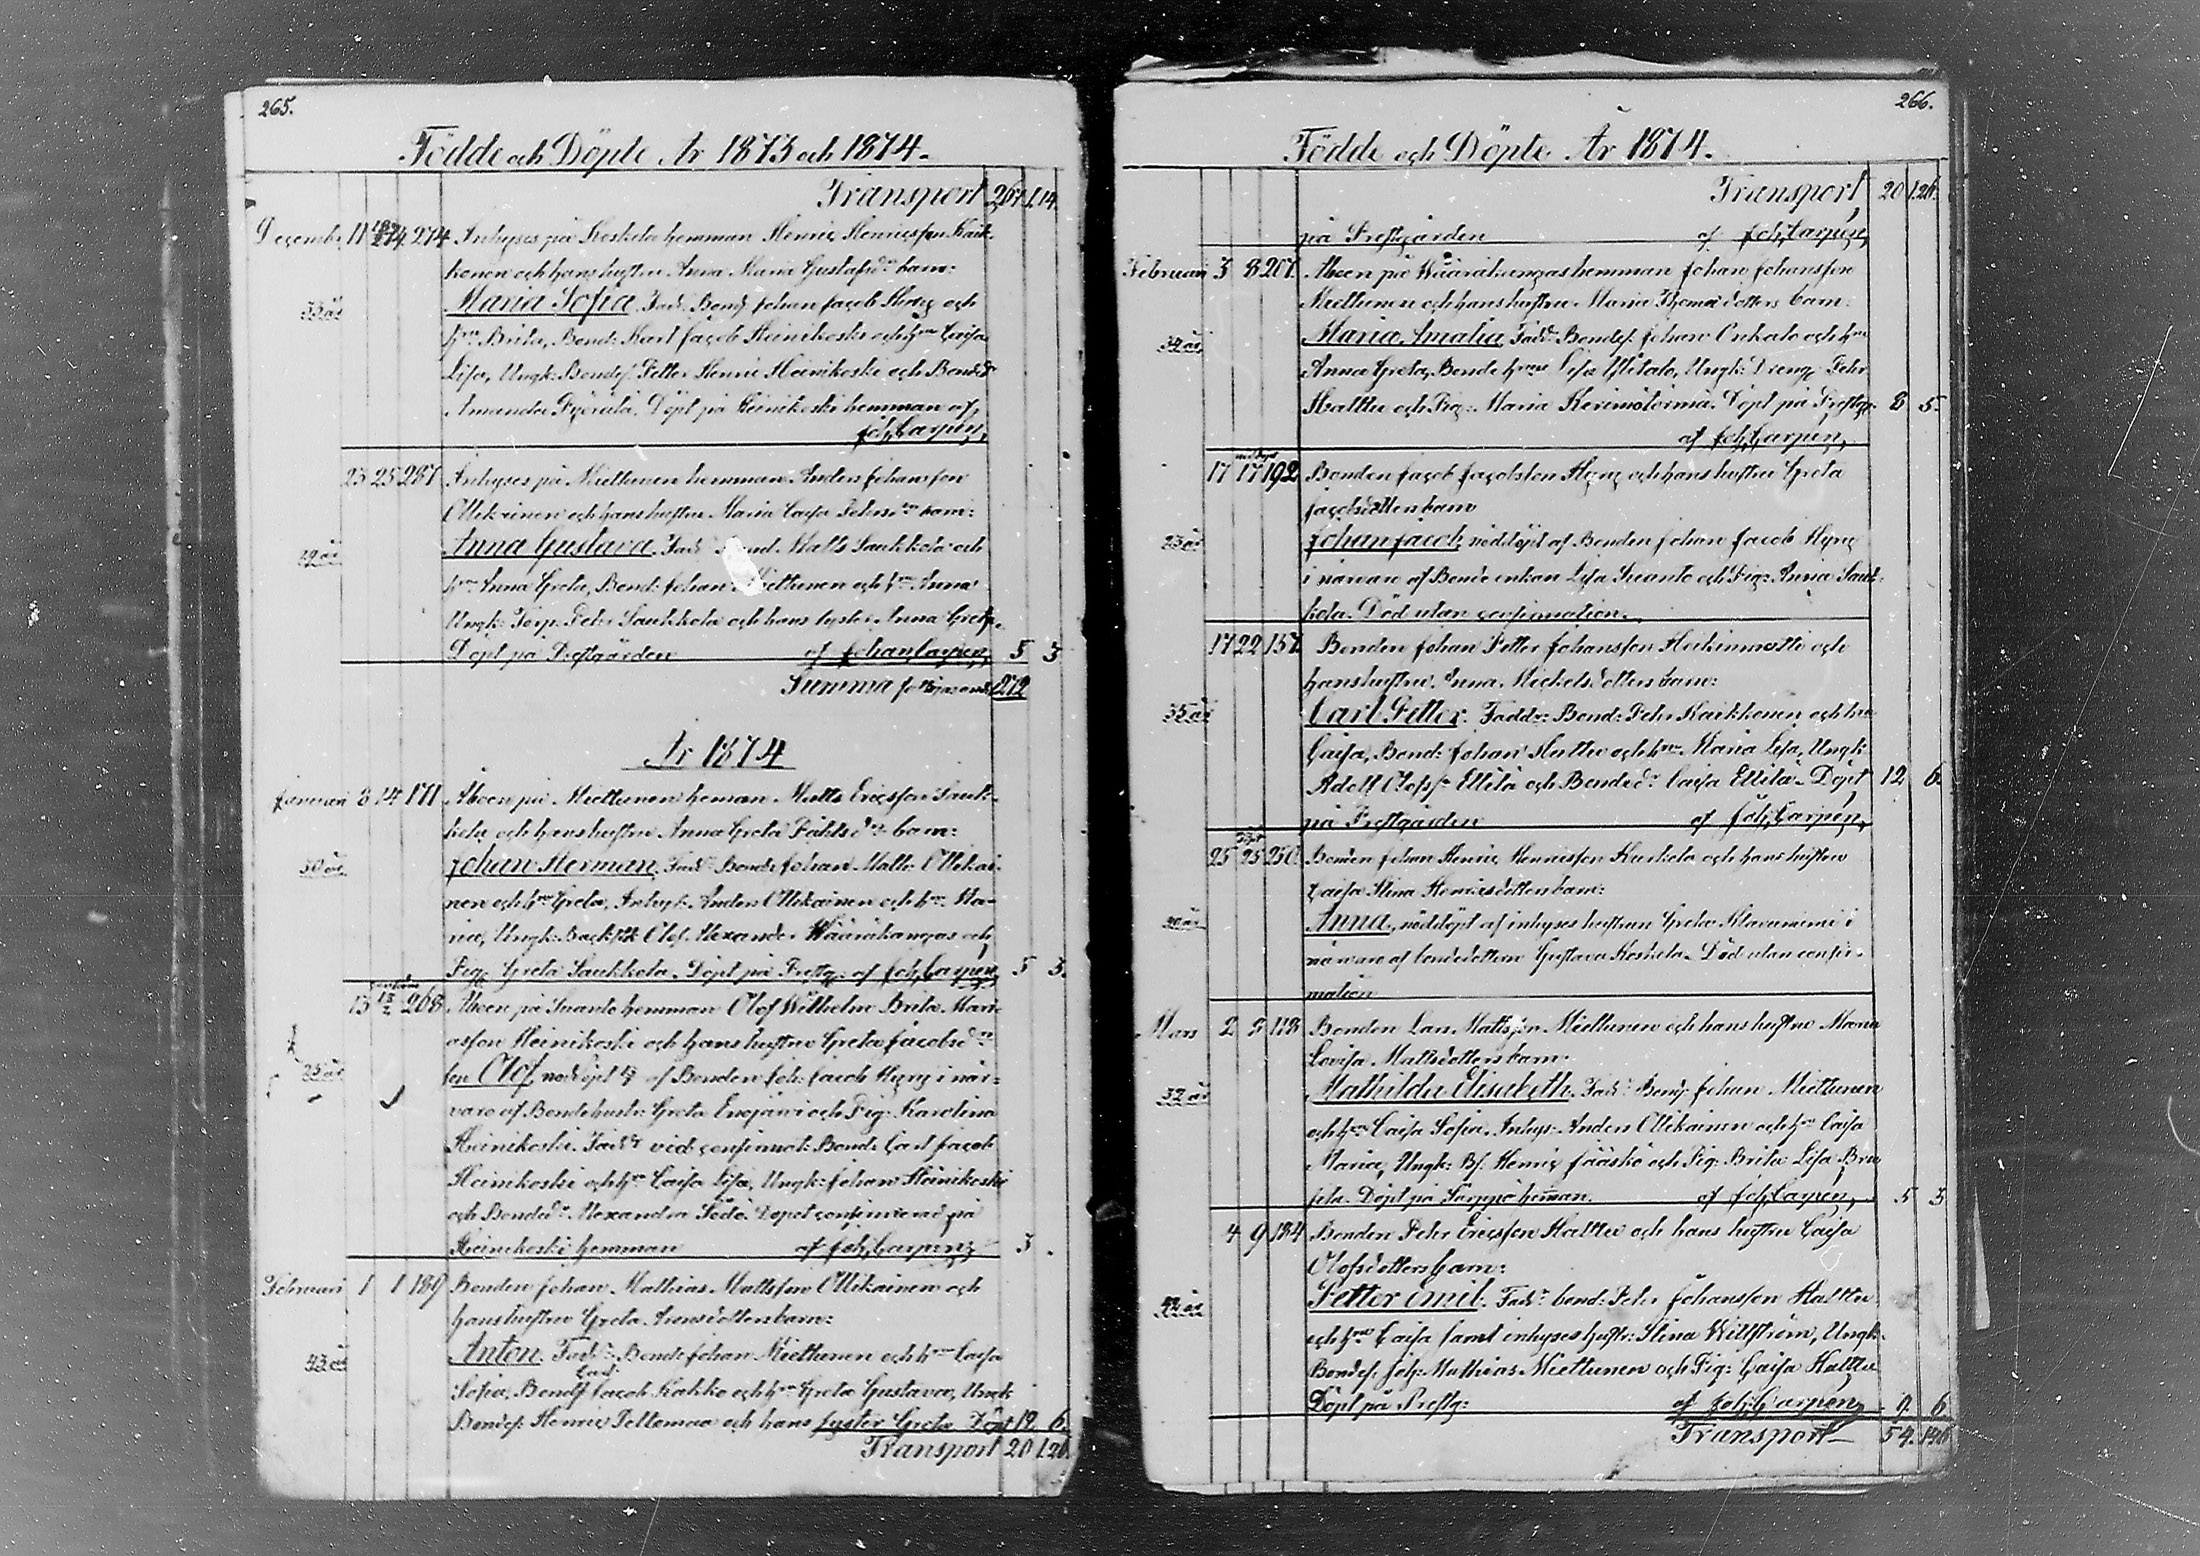 265.
Födde och Döpte År 1873 och 1874.
Transport 267 1.14.
Decemb. 11 274 Inhyses på Koskela hemman Henric Henricsson Kaik-
konen och hans hustru Anna Maria Gustafsdr barn:
33 år Maria Sofia. Fadd. Bond. Johan Jacob Hyry och
hru Brita, Bond: Karl Jacob Heinikoski och hru Caisa
Lisa, Ungk: Bondes. Petter Henric Heinikoski och Bonded.
Amanda Döpt på Heinikoski hemman af
Joh. Carpén,
23 25 287 Inhyses på Miettunen hemman Anders Johansson
Ollikainen och hans hustru Maria Caisa Pehrsdr barn:
29 år Anna Gustava. Fadd. Bond. Matts Saukkola och
hru Anna Greta, Bond: Johan Miettunen och hru Anna
Ungk: Torp. Pehr Saukkola och hans syster Anna Greta.
Döpt på Prestgården af Johan Carpén, 5 3
Summa 272
År 1874
Januari 8 14 171 Åboen på Miettunen heman Matts Ericsson Sauk-
kola och hans hustru Anna Greta dr barn:
30 år Johan Herman. Fadd. Bond: Johan Matts. Ollikai-
nen och hru Greta, Inhys: Anders Ollikainen och hru Ma-
ria, Ungk: Olof Alexander Wääräkangas och
Pig: Greta Saukkola. Döpt på Prestg: af Joh. Carpén, 5 3.
13 268 Åboen på Suanto hemman Olof Wilhelm Brita Mari-
asson Heinikoski och hans hustru Greta Jacobsdr
25 år son Olof, nöddöpt af Bonden Joh: Jacob Hyry i när-
varo af Bondehustr: Greta Enojärvi och Pig: Karolina
Heinikoski. Fadd. vid confirmat: Bond: Carl Jacob
Heinikoski och hru Caisa Lisa, Ungk: Johan Heinikoski
och Bonded. Alexandra Dopet confirmerad på
Heinikoski hemman af Joh. Carpén, 3 .
Februari 1 1 189 Bonden Johan Mathias Mattsson Ollikainen och
hans hustru Greta barn:
43 år Anton. Fadd. Bond: Johan Miettunen och hru Caisa
Sofia, Bonds. Jacob Kakko och hru Greta Gustava, Ungk:
Bondes. Henric Peltomaa och hans syster Greta. Döpt 12 6.
Transport 20 1.26.
266.
Födde och Döpte År 1874.
Transport 20 1.26.
på Prestgården af Joh. Carpén,
Februari 3 8 207. Åboen på Wääräkangas hemman Johan Johansson
Miettunen och hans hustru Maria Thomædotters barn:
34 år Maria Amalia. Fadd. Bondes. Johan Onkalo och hru
Anna Greta, Bonde hru Lisa Ylitalo, Ungk: Dreng Pehr
Halttu och Pig: Maria Döpt på Prestg: 8 5.
af Joh. Carpén,
17 17 192 Bonden Jacob Jacobsson Hyry och hans hustru Greta
Jacobsdotters barn
23 år Johan Jacob, nöddöpt af Bonden Johan Jacob Hyry
i närvaro af Bonde enkan Lisa Suanto och Pig: Anna Sauk-
kola. Död utan confirmation.
17 22 157 Bonden Johan Petter Johansson Heikinmatti och
hans hustru Anna Mickelsdotters barn:
35 år Carl Petter. Faddr: Bond: Pehr Kaikkonen och hru
Caisa, Bond: Johan Halttu och hru Maria Lisa, Ungk:
Adolf Olofss. Ellilä och Bonded. Caisa Ellilä. Döpt 12 6.
på Prestgården af Joh. Carpén,
25 25 250. Bonden Johan Henric Henricsson Kurkela och hans hustru
Caisa Stina Henricsdotters barn:
40 år Anna, nöddöpt af inhyses hustrun Greta i
närvaro af bondedottern Gustava Koskela. Död utan confir-
mation
Mars 2 8 118 Bonden Lars Mattsson Miettunen och hans hustru Maria
Lovisa Mattsdotters barn.
32 år Mathilda Elisabeth. Fadd. Bond: Johan Miettunen
och hru Caisa Sofia, Inhys: Anders Ollikainen och hru Caisa
Maria, Ungk: Bs: Henric Jääskö och Pig: Brita Lisa
Döpt på hemman. af Joh. Carpén, 5 3
4 9 184 Bonden Pehr Ericsson Halttu och hans hustru Caisa
Olofsdotters barn:
42 år Petter Emil. Fadd. bond: Pehr Johansson Halttu
och hru Caisa samt inhyses hustr: Stina Willström, Ungk:
Bondes. Joh: Mathias Miettunen och Pig: Caisa Halttu
Döpt på Prestg: af Joh: Carpén, 9. 6
Transport 54.